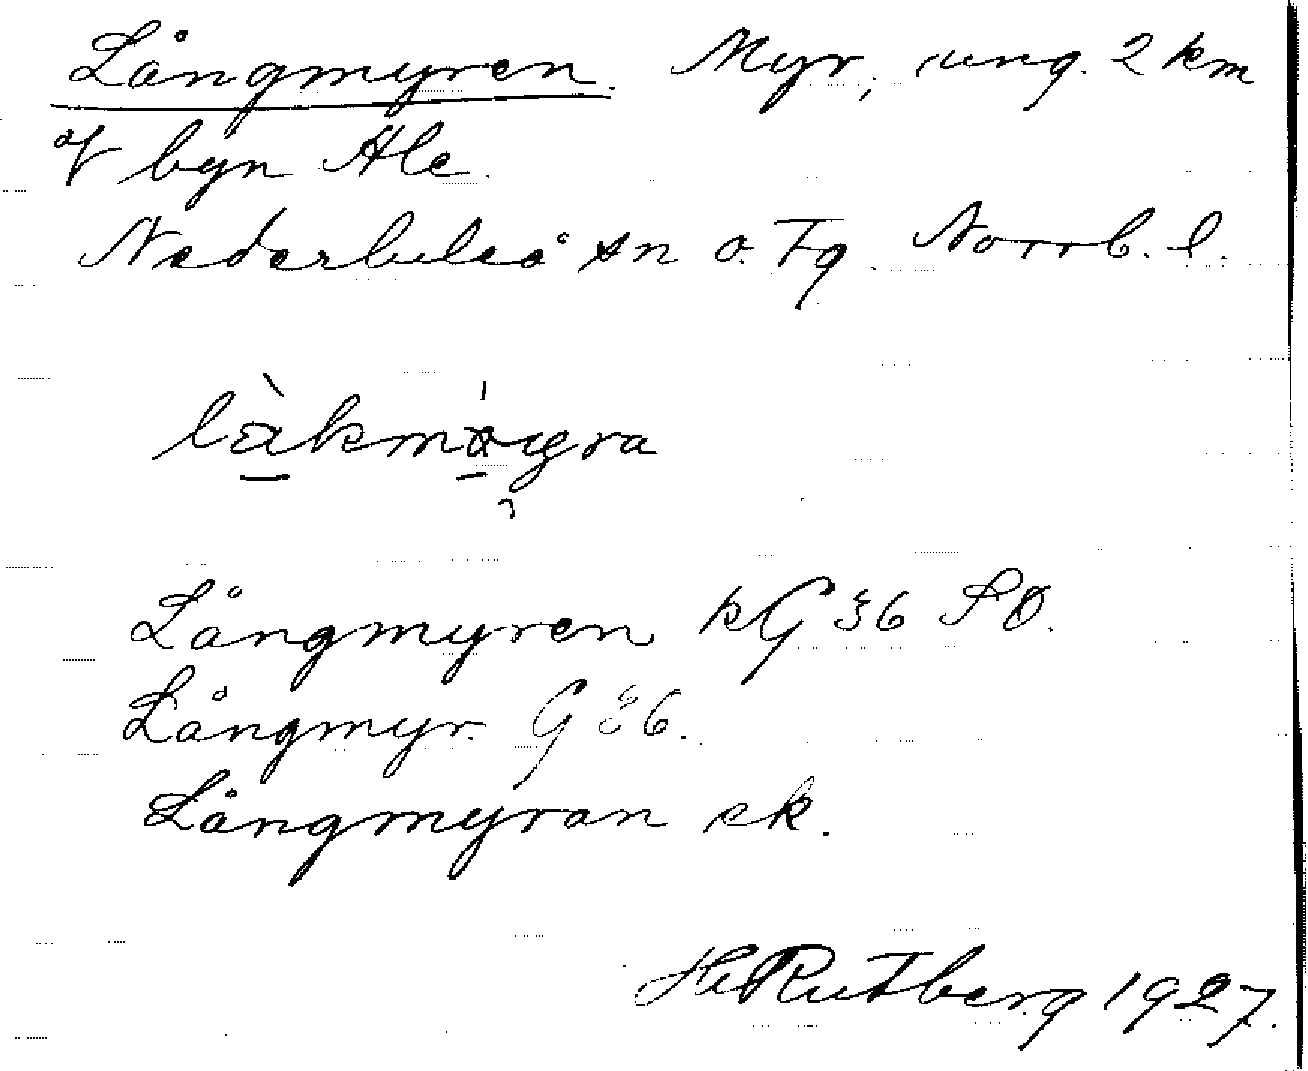 Långmyren. Myr, ung. 2 km
V byn Ale.
Nederluleå sn o. Tg. Norrb. l.
Långmyren kG 36 SO.
Långmyr. G 36.
Långmyran ek.
H Rutberg 1927.